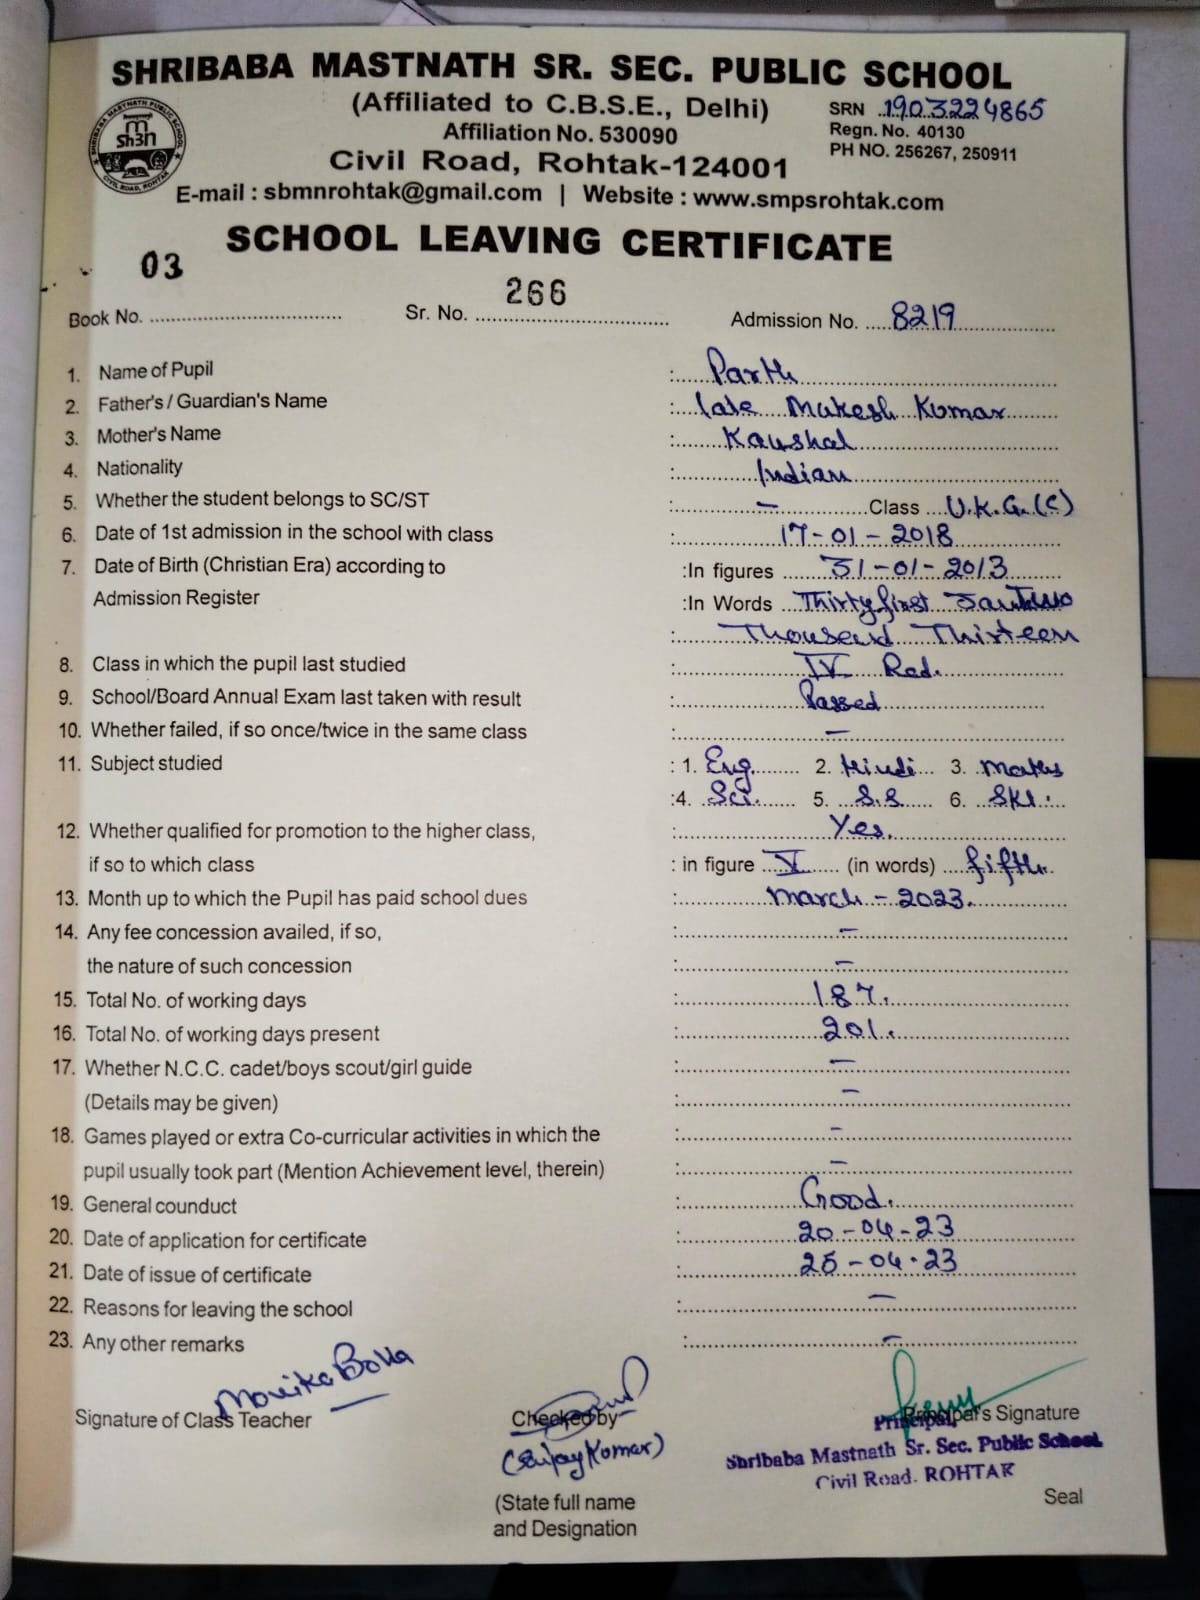 SHRIBABA MASTNATH SR. SEC. PUBLIC SCHOOL
(Affiliated to C.B.S.E., Delhi)
SRN 1903224865
Affiliation No. 530090
Regn. No. 40130
Civil Road, Rohtak-124001
PH NO. 256267, 250911
E-mail : sbmnrohtak@gmail.com | Website : www.smpsrohtak.com
SCHOOL LEAVING CERTIFICATE
Book No. 03 Sr. No. 266 Admission No. 8219
1. Name of Pupil : Parth
2. Father's / Guardian's Name : late Mukesh Kumar
3. Mother's Name : Kaushal
4. Nationality : Indian
5. Whether the student belongs to SC/ST : – Class U.K.G.(C)
6. Date of 1st admission in the school with class : 17-01-2018
7. Date of Birth (Christian Era) according to :In figures 31-01-2013
Admission Register :In Words Thirtyfirst Jan Two
: Thousand Thirteen
8. Class in which the pupil last studied : IV Red.
9. School/Board Annual Exam last taken with result : Passed
10. Whether failed, if so once/twice in the same class : –
11. Subject studied : 1. Eng. 2. Hindi 3. Maths
:4. Sci. 5. S.S 6. Skt.
12. Whether qualified for promotion to the higher class, : Yes.
if so to which class : in figure V (in words) fifth.
13. Month up to which the Pupil has paid school dues : March - 2023.
14. Any fee concession availed, if so, : –
the nature of such concession : –
15. Total No. of working days : 187.
16. Total No. of working days present : 201.
17. Whether N.C.C. cadet/boys scout/girl guide : –
(Details may be given) : –
18. Games played or extra Co-curricular activities in which the : –
pupil usually took part (Mention Achievement level, therein) : –
19. General counduct : Good.
20. Date of application for certificate : 20-04-23
21. Date of issue of certificate : 25-04-23
22. Reasons for leaving the school : –
23. Any other remarks : –
Signature of Class Teacher Checked by Principal's Signature
Principal,
Shribaba Mastnath Sr. Sec. Public School
Civil Road. ROHTAK
(State full name
and Designation
Seal